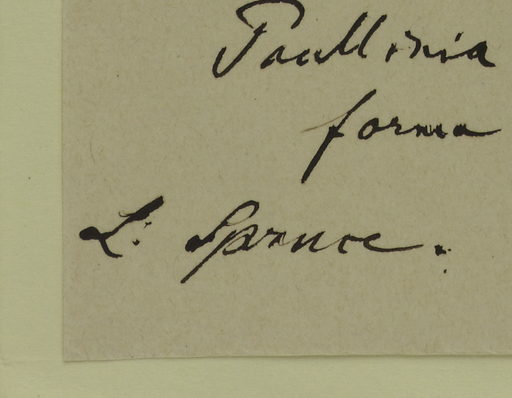 Paullinia
forma
L. Spruce.